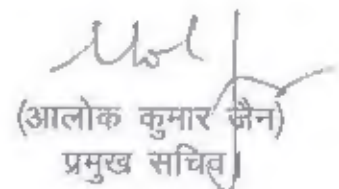 (आलोक कुमार जैन)
प्रमुख सचिव।